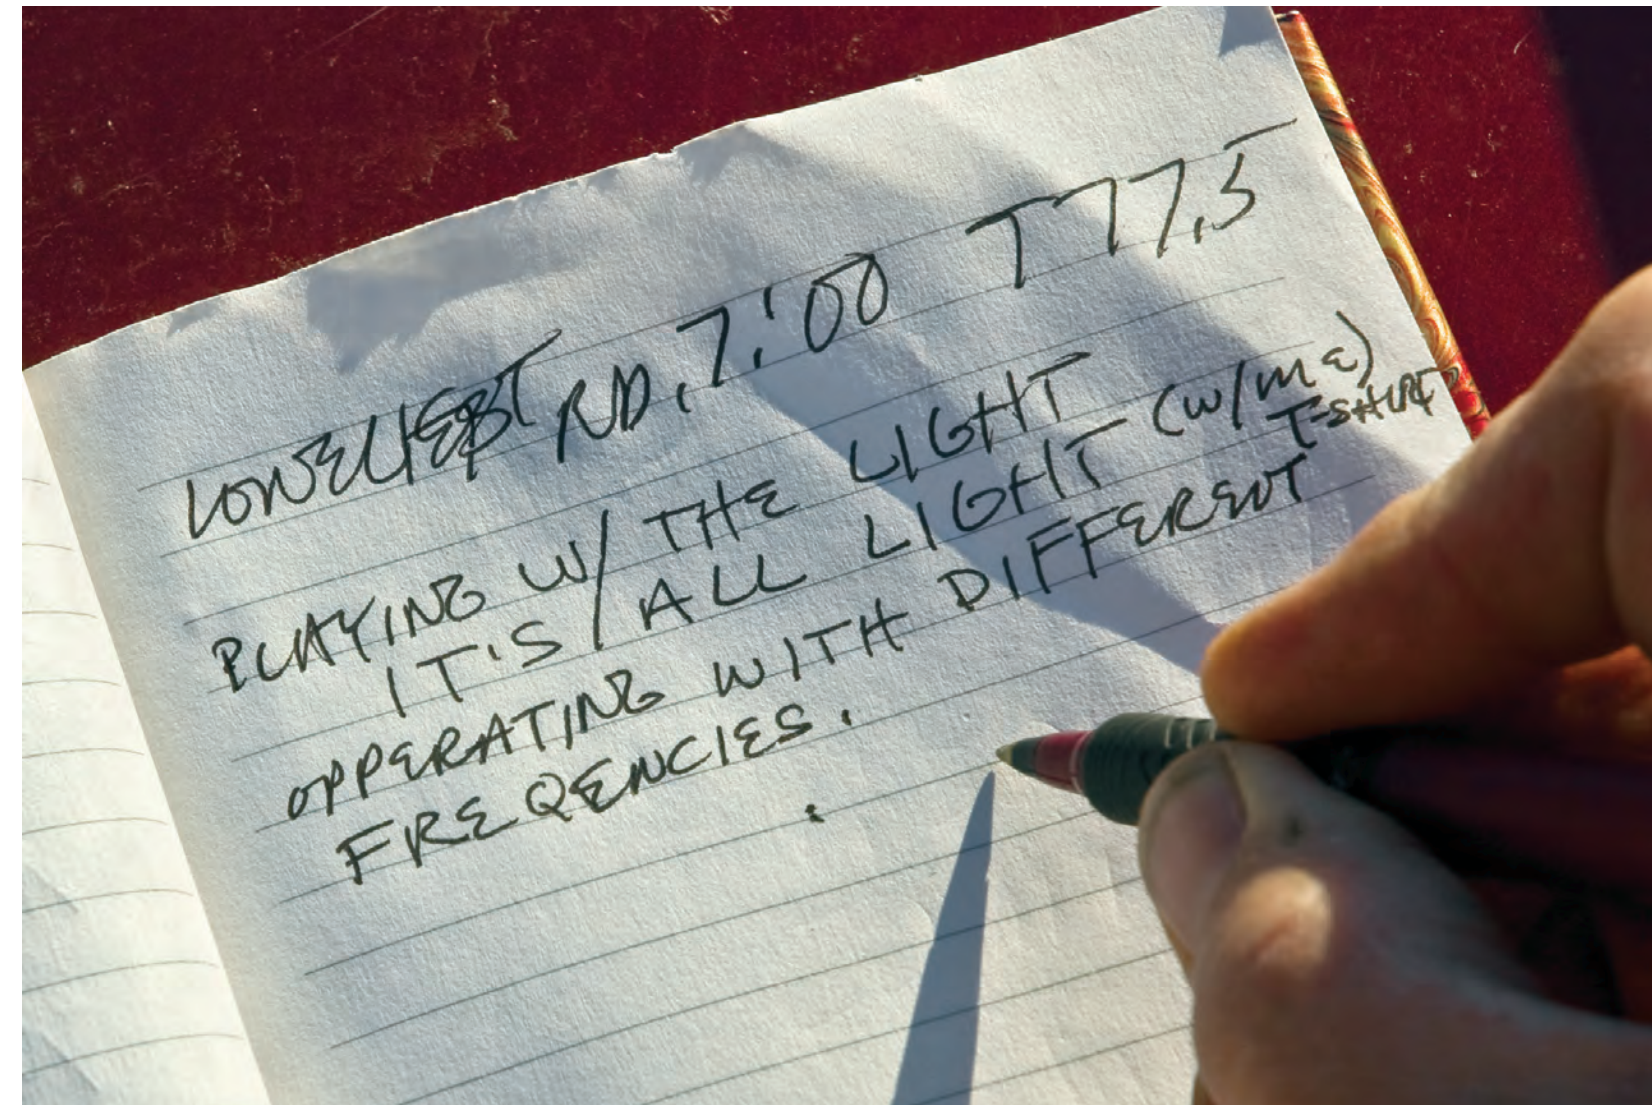 LONELIEST RD, 7:00 T 77,5
PLAYING W/ THE LIGHT
IT'S / ALL LIGHT (W/ME)
T-SHIRT
OPPERATING WITH DIFFERENT
FREQENCIES.